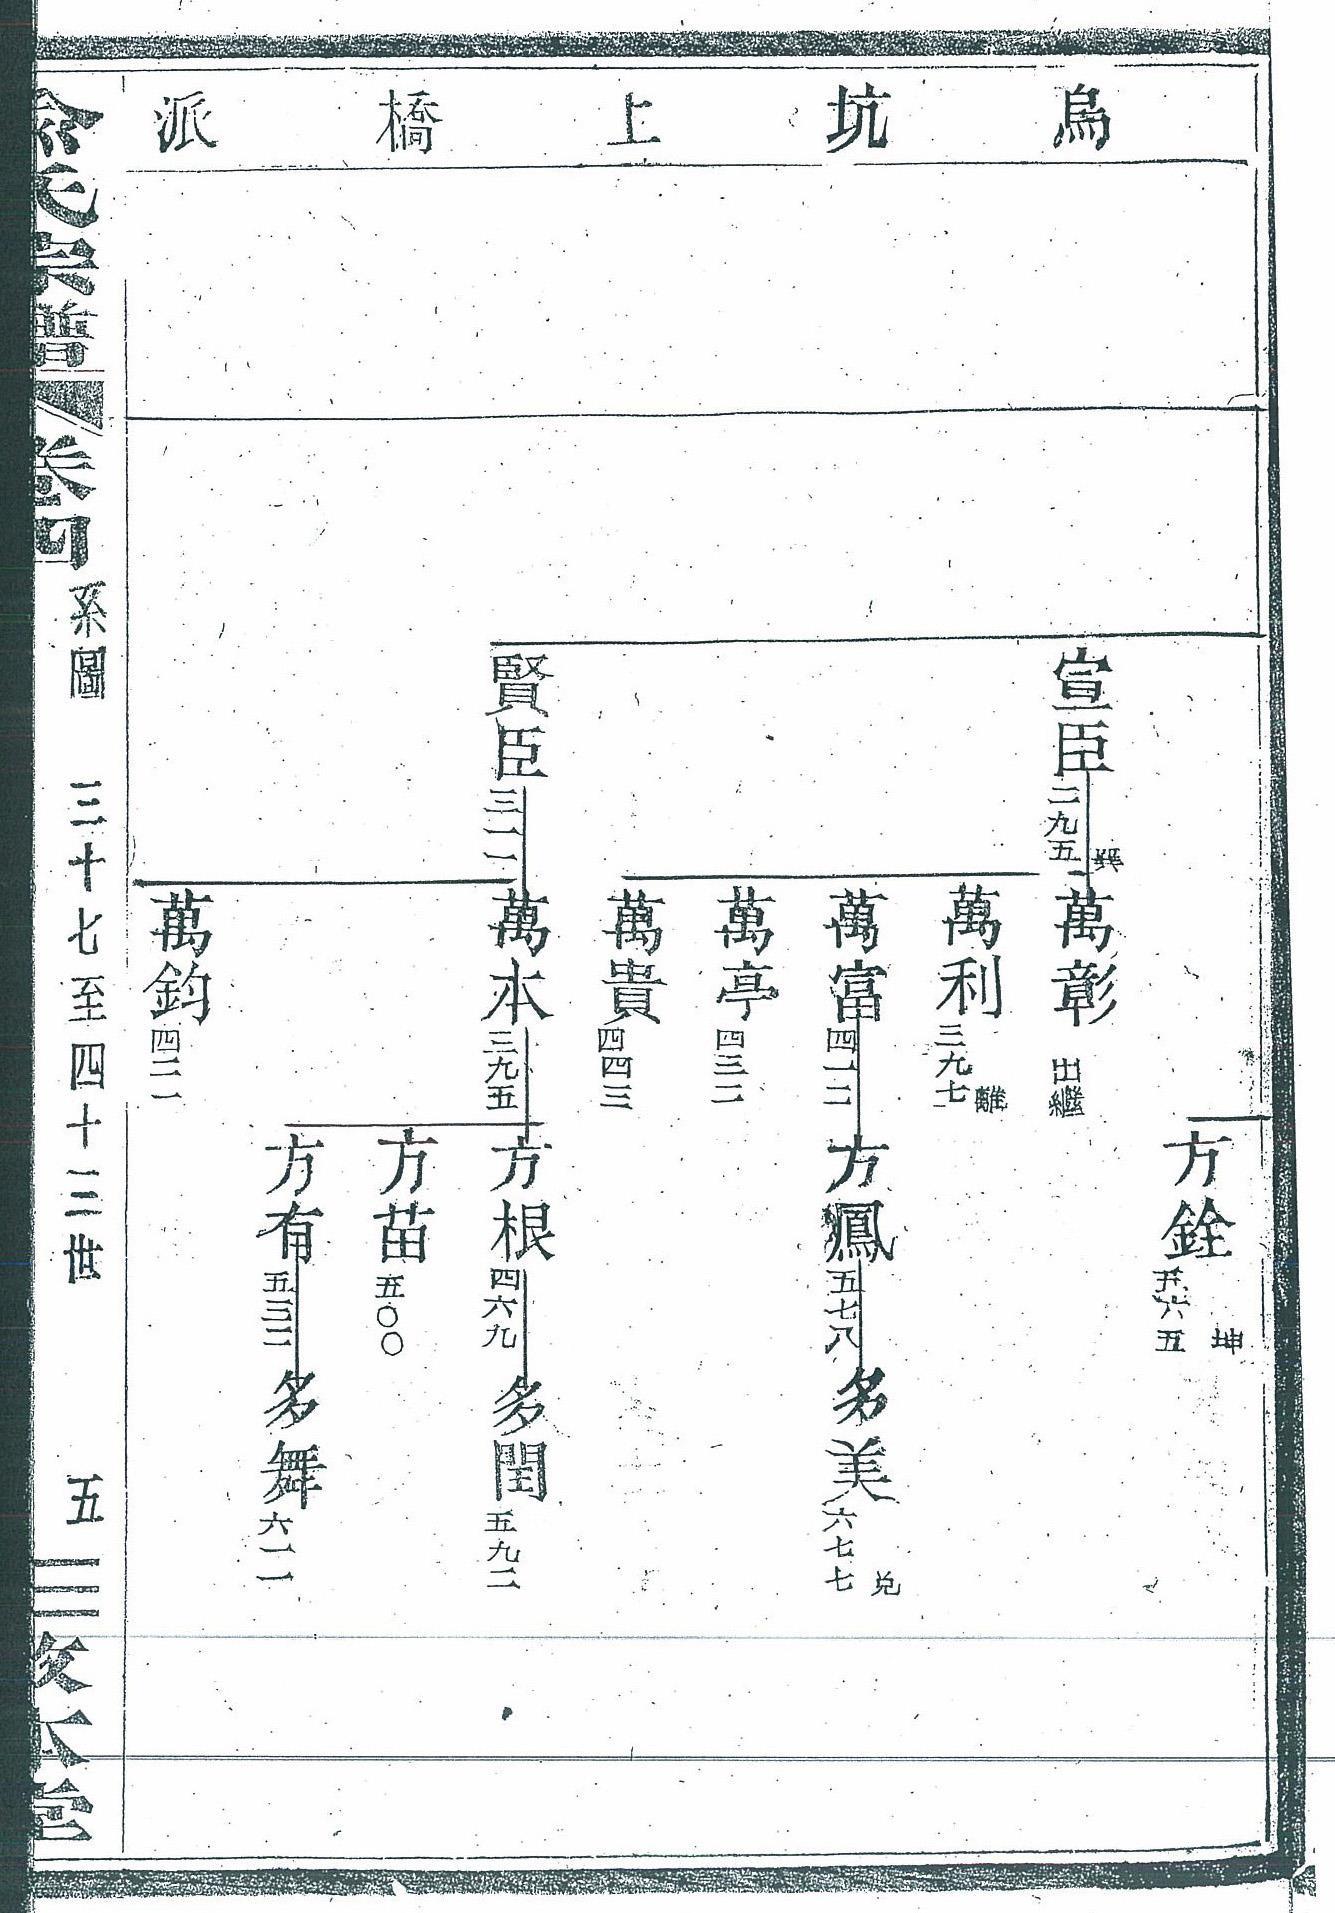 烏坑上橋派
方銓
五六五 坤
宣臣
二九五 巽
萬彰
出繼
萬利
三九七 離
萬富
四一二
方鳳
五七八
多美
六七七 兌
萬亭
四三二
萬貴
四四三
賢臣
三一一
萬本
三九五
方根
四六九
多閏
五九二
方苗
五〇〇
方有
五三二
多舞
六一一
萬鈞
四二一
俞氏宗譜
卷四
系圖 三十七至四十二世 五
敦本堂